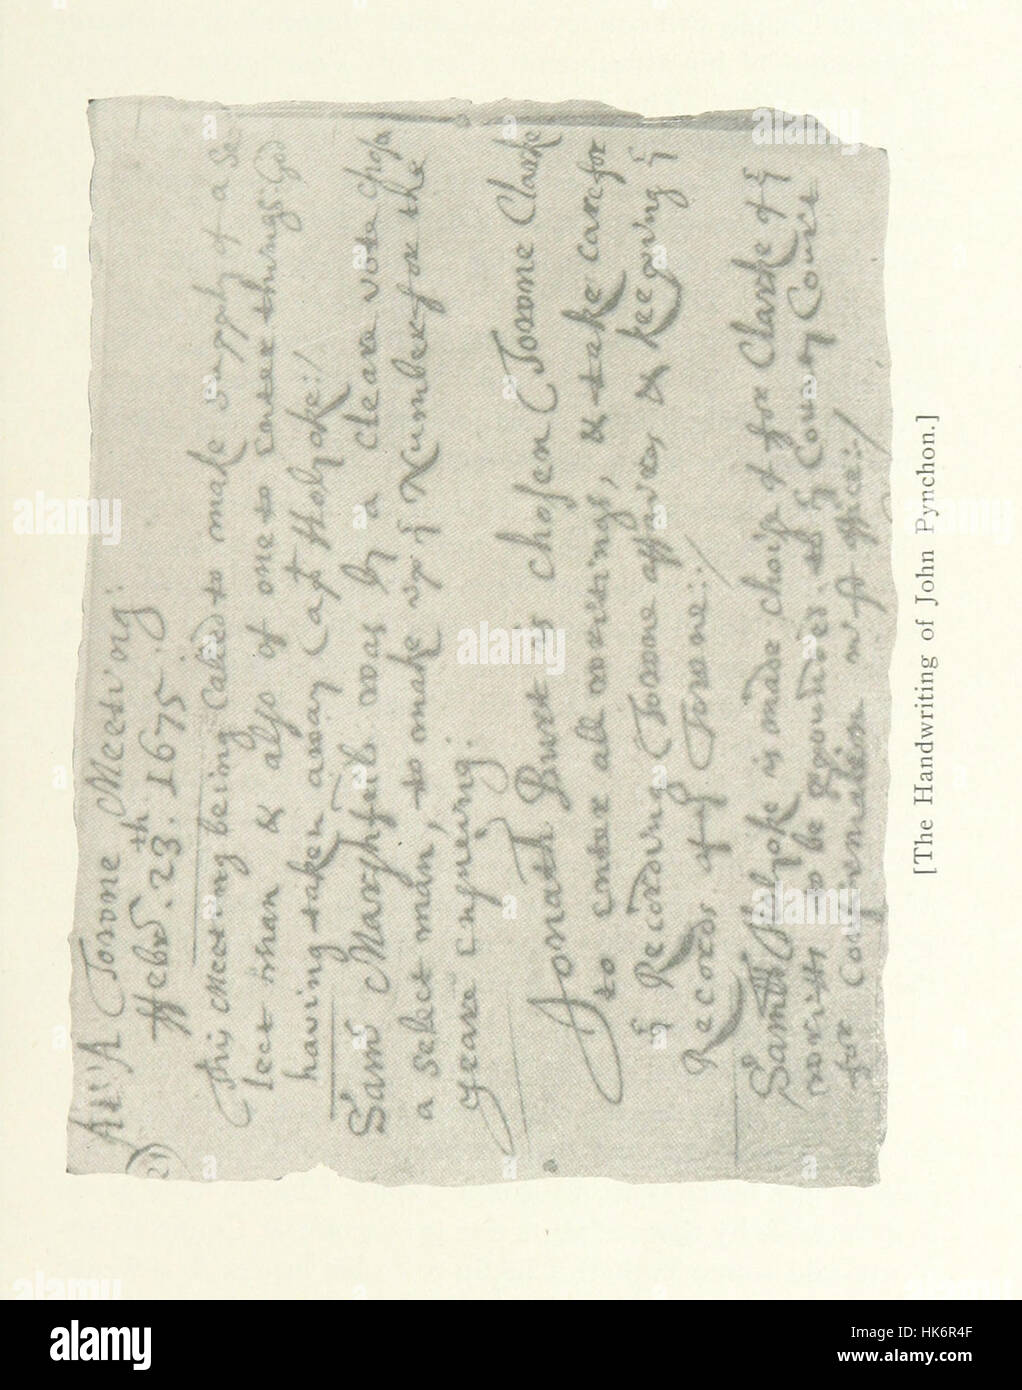 Att A Towne Meeting:
21
Febr. 23th. 1675.
This Meeting being Caled to make supply of a Se
lect man & also of one to Enter things God
having taken away Capt Holyoke:/
Sam Marshfeild was by a cleare vote chosen
a Select man, to make up ye Number for the
yeare ensueing:
Jonath Burt is chosen Towne Clarke
to enter all writings, & take care for
ye Recording Towne affaires & keeping ye
Records of ye Towne:/
Samll Holyoke is made choice of for Clarke of ye
writts to be propounded to ye County Court
for Confirmation in yt office:/
[The Handwriting of John Pynchon.]
alamy
Image ID: HK6R4F
www.alamy.com